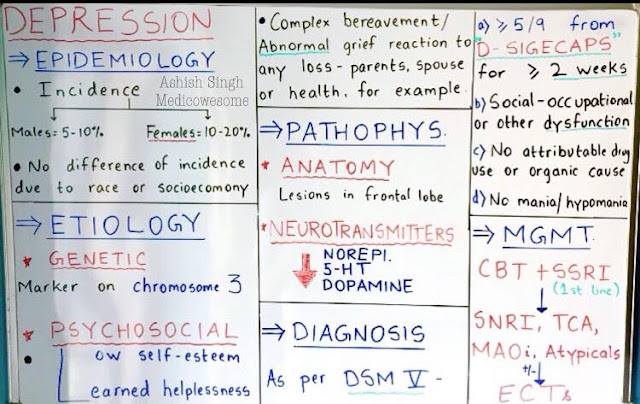 DEPRESSION
⇒ EPIDEMIOLOGY
• Incidence
Ashish Singh
Medicowesome
Males = 5-10% Females = 10-20%
• No difference of incidence
due to race or socioecomony
⇒ ETIOLOGY
* GENETIC
Marker on chromosome 3
* PSYCHOSOCIAL
• Low self-esteem
Learned helplessness
• Complex bereavement/
Abnormal grief reaction to
any loss - parents, spouse
or health, for example.
⇒ PATHOPHYS.
* ANATOMY
Lesions in frontal lobe
* NEUROTRANSMITTERS
↓ NOREPI.
5-HT
DOPAMINE
⇒ DIAGNOSIS
As per DSM V -
a) ⩾ 5/9 from
"D-SIGECAPS"
for ⩾ 2 weeks
b) Social-occupational
or other dysfunction
c) No attributable drug
use or organic cause
d) No mania/hypomania
⇒ MGMT.
CBT + SSRI
(1st line)
↓
SNRI, TCA,
MAOi, Atypicals
+/- ↓
ECTs